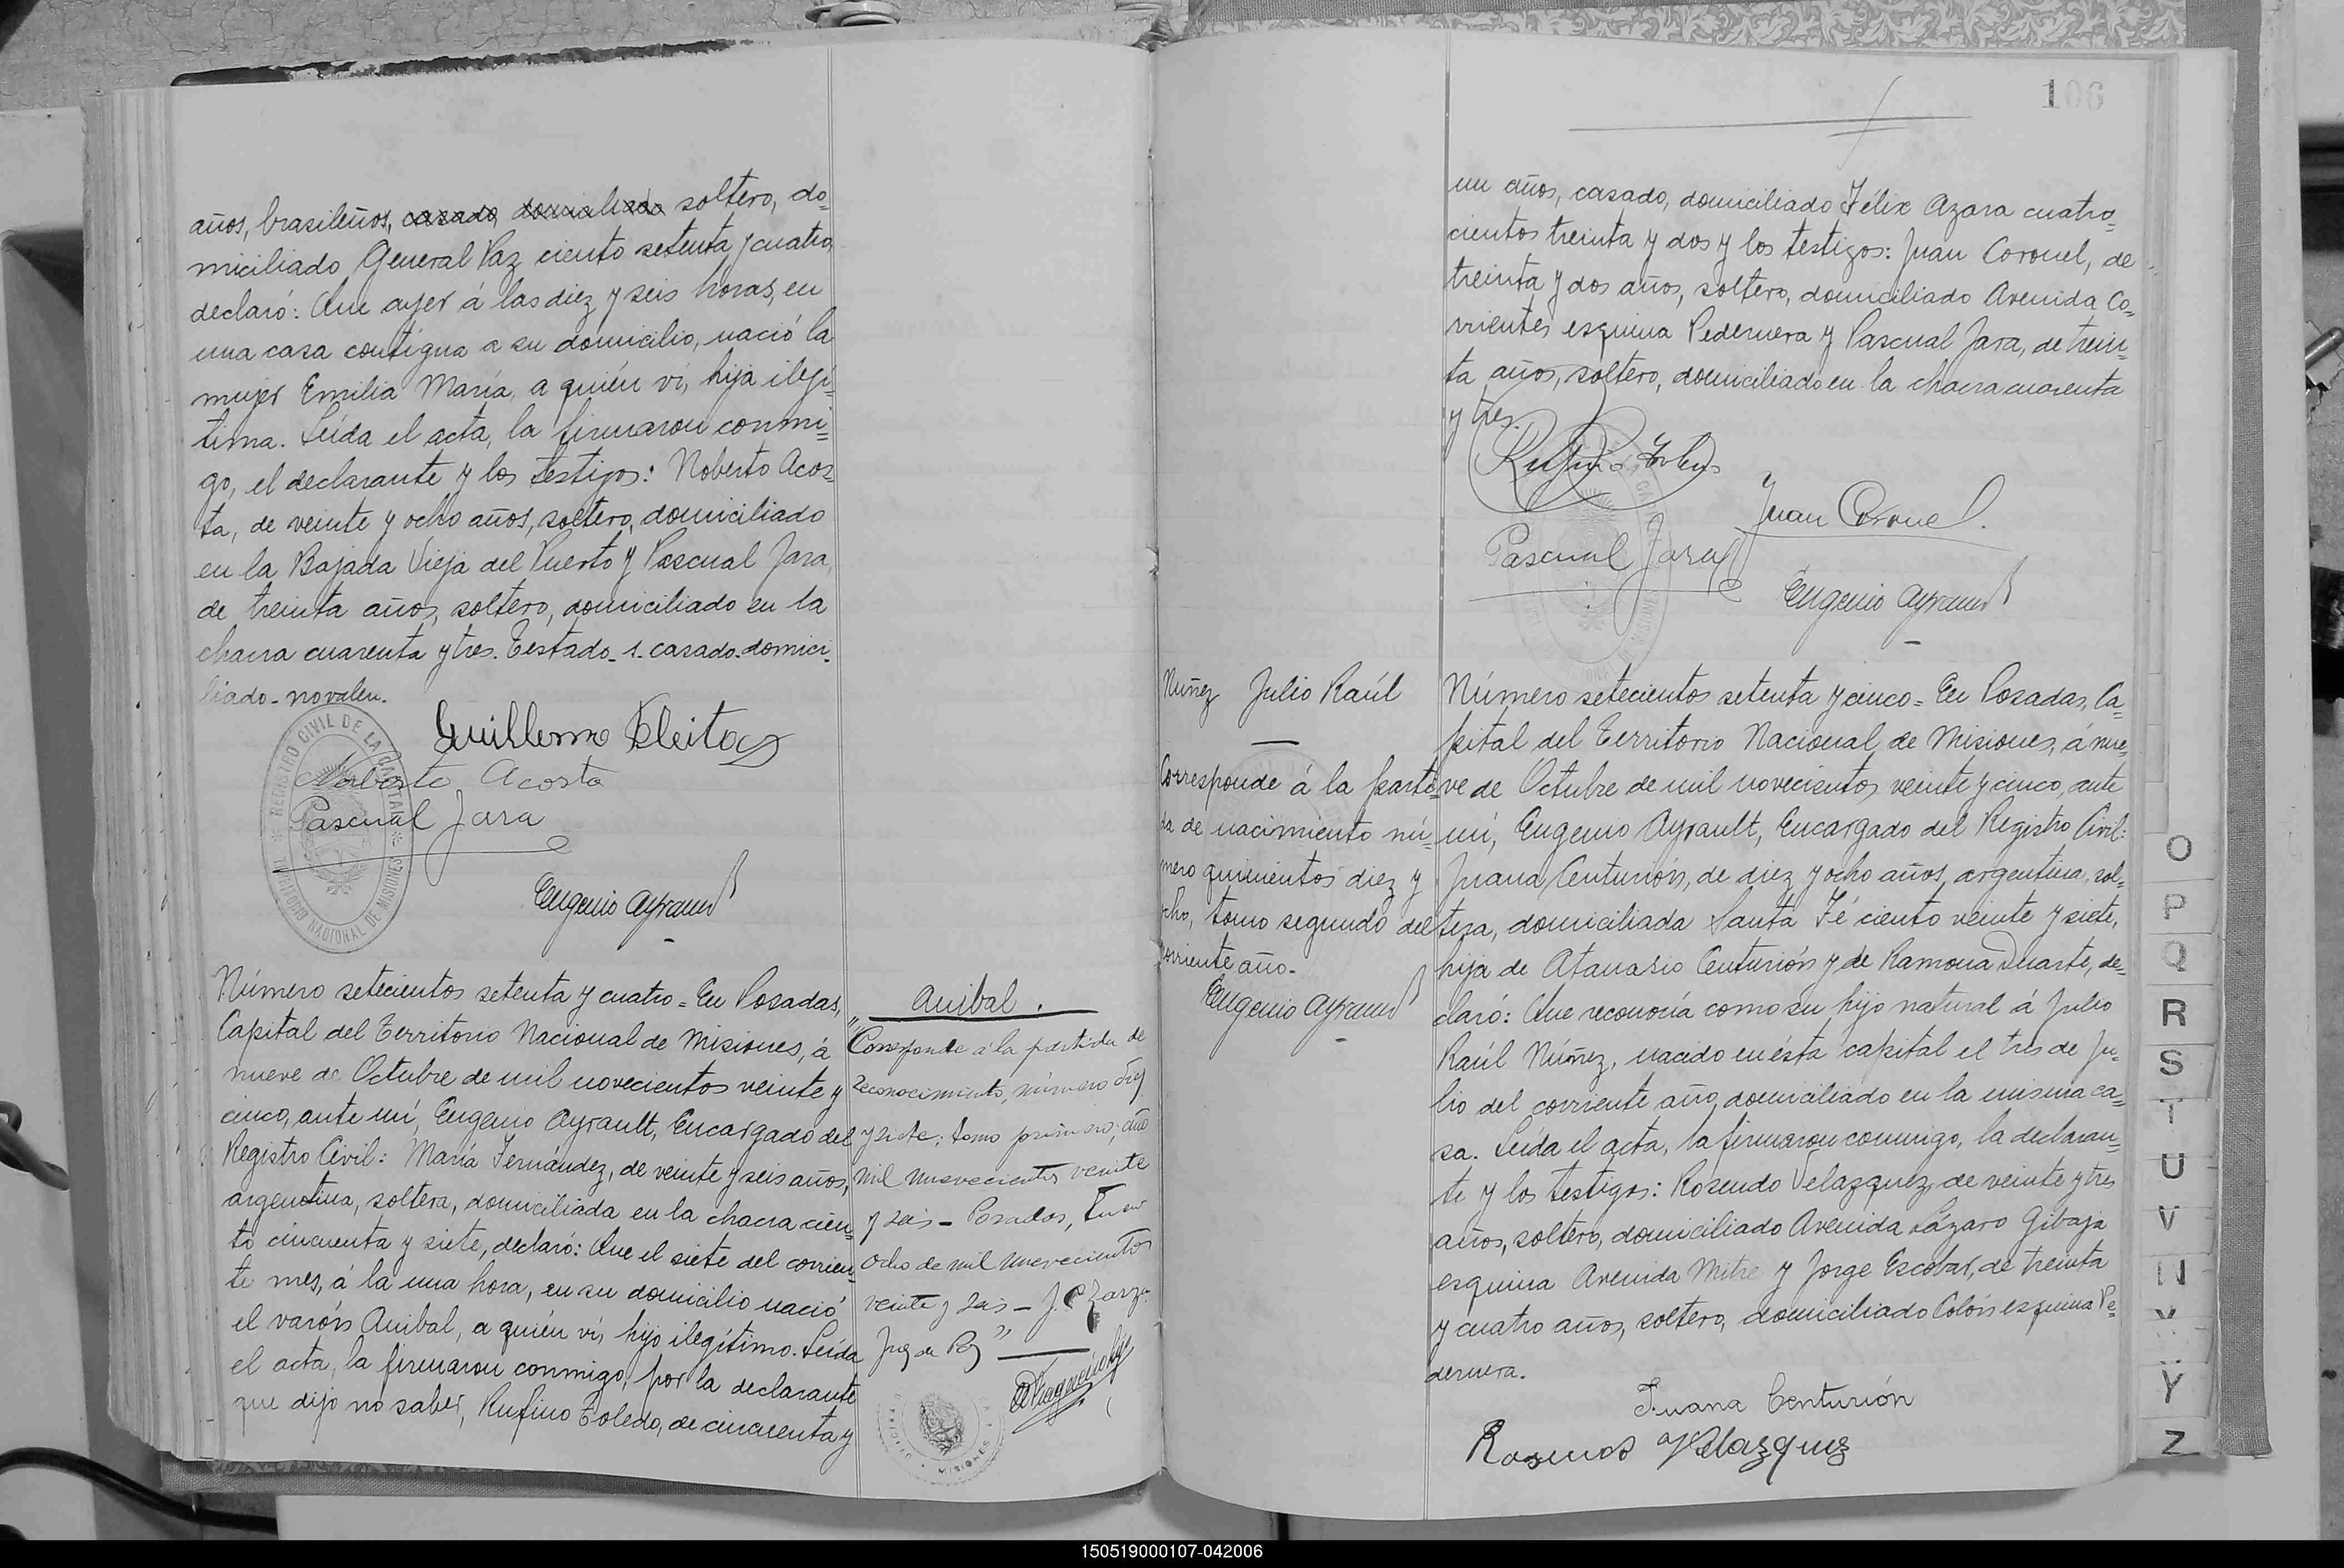 años, brasileños, casado, domiciliado soltero, do=
miciliado General Paz ciento setenta y cuatro,
declaró: Que ayer á las diez y seis horas, en
una casa contigua a su domicilio, nació la
mujer Emilia María, a quién ví, hija ilegí=
tima. Leída el acta, la firmaron conmi=
go, el declarante y los testigos: Noberto Acos=
ta, de veinte y ocho años, soltero, domiciliado
en la Bajada Vieja del Puerto y Pascual Jara,
de treinta años, soltero, domiciliado en la
chacra cuarenta y tres. Testado-1-casado-domici-
liado-no valen.
Guillermo Fleitas
Norberto Acosta
Pascual Jara
REGISTRO CIVIL DE LA CAPITAL
TERRITORIO NACIONAL DE MISIONES
Eugenio Ayrault
Número setecientos setenta y cuatro = En Posadas,
Capital del Territorio Nacional de Misiones, á
nueve de Octubre de mil novecientos veinte y
cinco, ante mí, Eugenio Ayrault, Encargado del
Registro Civil: María Fernández, de veinte y seis años,
argentina, soltera, domiciliada en la chacra cien=
to cincuenta y siete, declaró: Que el siete del corrien=
te mes, á la una hora, en su domicilio nació
el varón Anibal, a quién ví, hijo ilegítimo. Leída
el acta, la firmaron conmigo, por la declarante
que dijo no saber, Rufino Toledo, de cincuenta y
Anibal.
"Corresponde á la partida de
reconocimiento, número diez
y siete; tomo primero; año
mil novecientos veinte
y seis - Posadas, Enero
ocho de mil novecientos
veinte y seis - J. C. Zarza
Juez de Paz"
MISIONES
106
un años, casado, domiciliado Félix Azara cuatro=
cientos treinta y dos y los testigos: Juan Coronel, de
treinta y dos años, soltero, domiciliado Avenida Co=
rrientes esquina Pedernera y Pascual Jara, de trein=
ta años, soltero, domiciliado en la chacra cuarenta
y tres.
Rufino Toledo
Juan Coronel.
Pascual Jara
Eugenio Ayrault
Nuñez Julio Raúl
Corresponde á la parti=
da de nacimiento nú=
mero quinientos diez y
ocho, tomo segundo del
corriente año.
Eugenio Ayrault
Número setecientos setenta y cinco = En Posadas, Ca=
pital del Territorio Nacional de Misiones, á nue=
ve de Octubre de mil novecientos veinte y cinco, ante
mí, Eugenio Ayrault, Encargado del Registro Civil:
Juana Centurión, de diez y ocho años, argentina, sol=
tera, domiciliada Santa Fé ciento veinte y siete,
hija de Atanasio Centurión y de Ramona Duarte, de=
claró: Que reconocía como su hijo natural á Julio
Raúl Núñez, nacido en ésta capital el tres de Ju=
lio del corriente año, domiciliado en la misma ca=
sa. Leída el acta, la firmaron conmigo, la declaran=
te y los testigos: Rosendo Velazquez, de veinte y tres
años, soltero, domiciliado Avenida Lázaro Gibaja
esquina Avenida Mitre y Jorge Escobar, de treinta
y cuatro años, soltero, domiciliado Colón esquina Pe=
dernera.
Juana Centurión
Rosendo Velazquez
O
P
Q
R
S
T
U
V
W
X
Y
Z
150519000107-042006